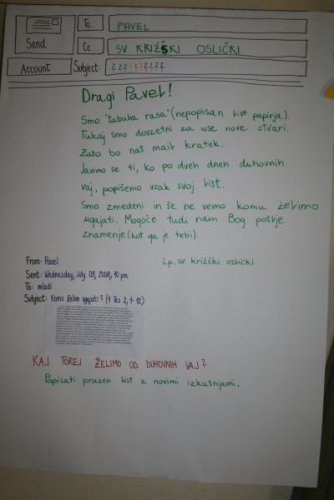 To PAVEL
Send
Cc SV. KRIŽSKI OSLIČKI
Account Subject: ????????
Dragi Pavel!
Smo "tabula rasa" (nepopisan list papirja).
Tukaj smo dovzetni za vse nove stvari.
Zato bo naš mail kratek.
Javimo se ti, ko po dveh dneh duhovnih
vaj, popišemo vsak svoj list.
Smo zmedeni in še ne vemo komu želimo
ugajati. Mogoče tudi nam Bog pošlje
znamenje (kot ga je tebi).
Lp, sv. križski oslički
From: Pavel
Sent: Wednesday, July 09, 2008, 10 pm
To: mladi
Subject: Komu želim ugajati? (1 Tes 2, 1-12)
KAJ TOREJ ŽELIMO OD DUHOVNIH VAJ?
Popisati prazen list z novimi izkušnjami.